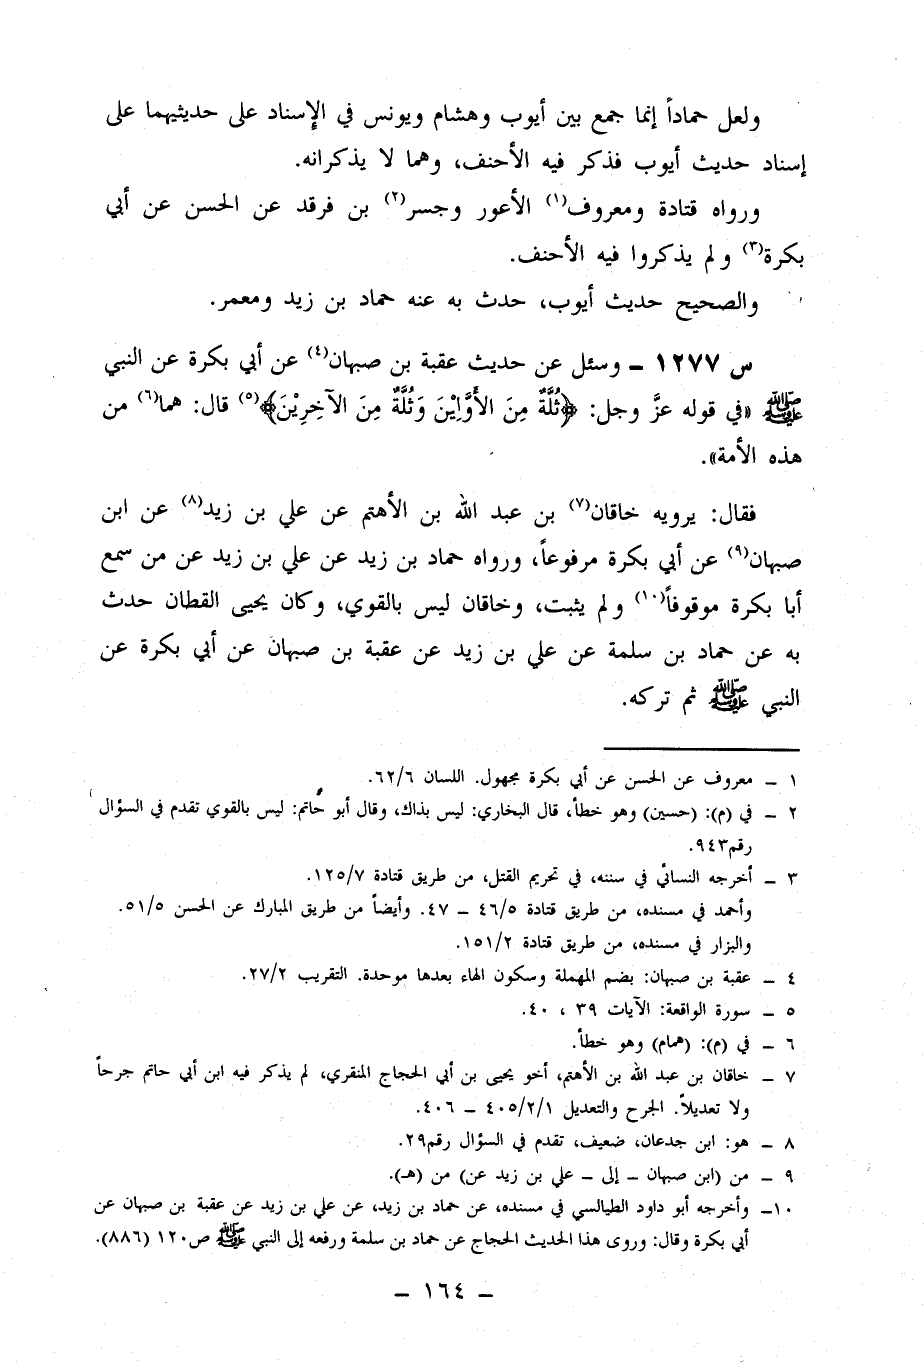 ولعل حماداً إنما جمع بين أيوب وهشام ويونس في الإسناد على حديثيهما على
إسناد حديث أيوب فذكر فيه الأحنف، وهما لا يذكرانه.
ورواه قتادة ومعروف(١) الأعور وجسر(٢) بن فرقد عن الحسن عن أبي
بكرة(٣) و لم يذكروا فيه الأحنف.
والصحيح حديث أيوب، حدث به عنه حماد بن زيد ومعمر.
س ١٢٧٧ – وسئل عن حديث عقبة بن صبهان(٤) عن أبي بكرة عن النبي
ﷺ «في قوله عزَّ وجل: ﴿ثُلَّةٌ مِنَ الأَوَّلِيْنَ وَثُلَّةٌ مِنَ الآخِرِيْنَ﴾(٥) قال: هما(٦) من
هذه الأمة».
فقال: يرويه خاقان(٧) بن عبد الله بن الأهتم عن علي بن زيد(٨) عن ابن
صبهان(٩) عن أبي بكرة مرفوعاً، ورواه حماد بن زيد عن علي بن زيد عن من سمع
أبا بكرة موقوفاً(١٠) و لم يثبت، وخاقان ليس بالقوي، وكان يحيى القطان حدث
به عن حماد بن سلمة عن علي بن زيد عن عقبة بن صبهان عن أبي بكرة عن
النبي ﷺ ثم تركه.
١ – معروف عن الحسن عن أبي بكرة مجهول. اللسان ٦٢/٦.
٢ – في (م): (حسين) وهو خطأ، قال البخاري: ليس بذاك، وقال أبو حاتم: ليس بالقوي تقدم في السؤال
رقم٩٤٣.
٣ – أخرجه النسائي في سننه، في تحريم القتل، من طريق قتادة ١٢٥/٧.
وأحمد في مسنده، من طريق قتادة ٤٦/٥ – ٤٧. وأيضاً من طريق المبارك عن الحسن ٥١/٥.
والبزار في مسنده، من طريق قتادة ١٥١/٢.
٤ – عقبة بن صبهان: بضم المهملة وسكون الهاء بعدها موحدة. التقريب ٢٧/٢.
٥ – سورة الواقعة: الآيات ٣٩ ، ٤٠.
٦ – في (م): (همام) وهو خطأ.
٧ – خاقان بن عبد الله بن الأهتم، أخو يحيى بن أبي الحجاج المنقري، لم يذكر فيه ابن أبي حاتم جرحاً
ولا تعديلاً. الجرح والتعديل ٤٠٥/٢/١ – ٤٠٦.
٨ – هو: ابن جدعان، ضعيف، تقدم في السؤال رقم٢٩.
٩ – من (ابن صبهان – إلى – علي بن زيد عن) من (هـ).
١٠– وأخرجه أبو داود الطيالسي في مسنده، عن حماد بن زيد، عن علي بن زيد عن عقبة بن صبهان عن
أبي بكرة وقال: وروى هذا الحديث الحجاج عن حماد بن سلمة ورفعه إلى النبي ﷺ ص١٢٠ (٨٨٦).
– ١٦٤ –